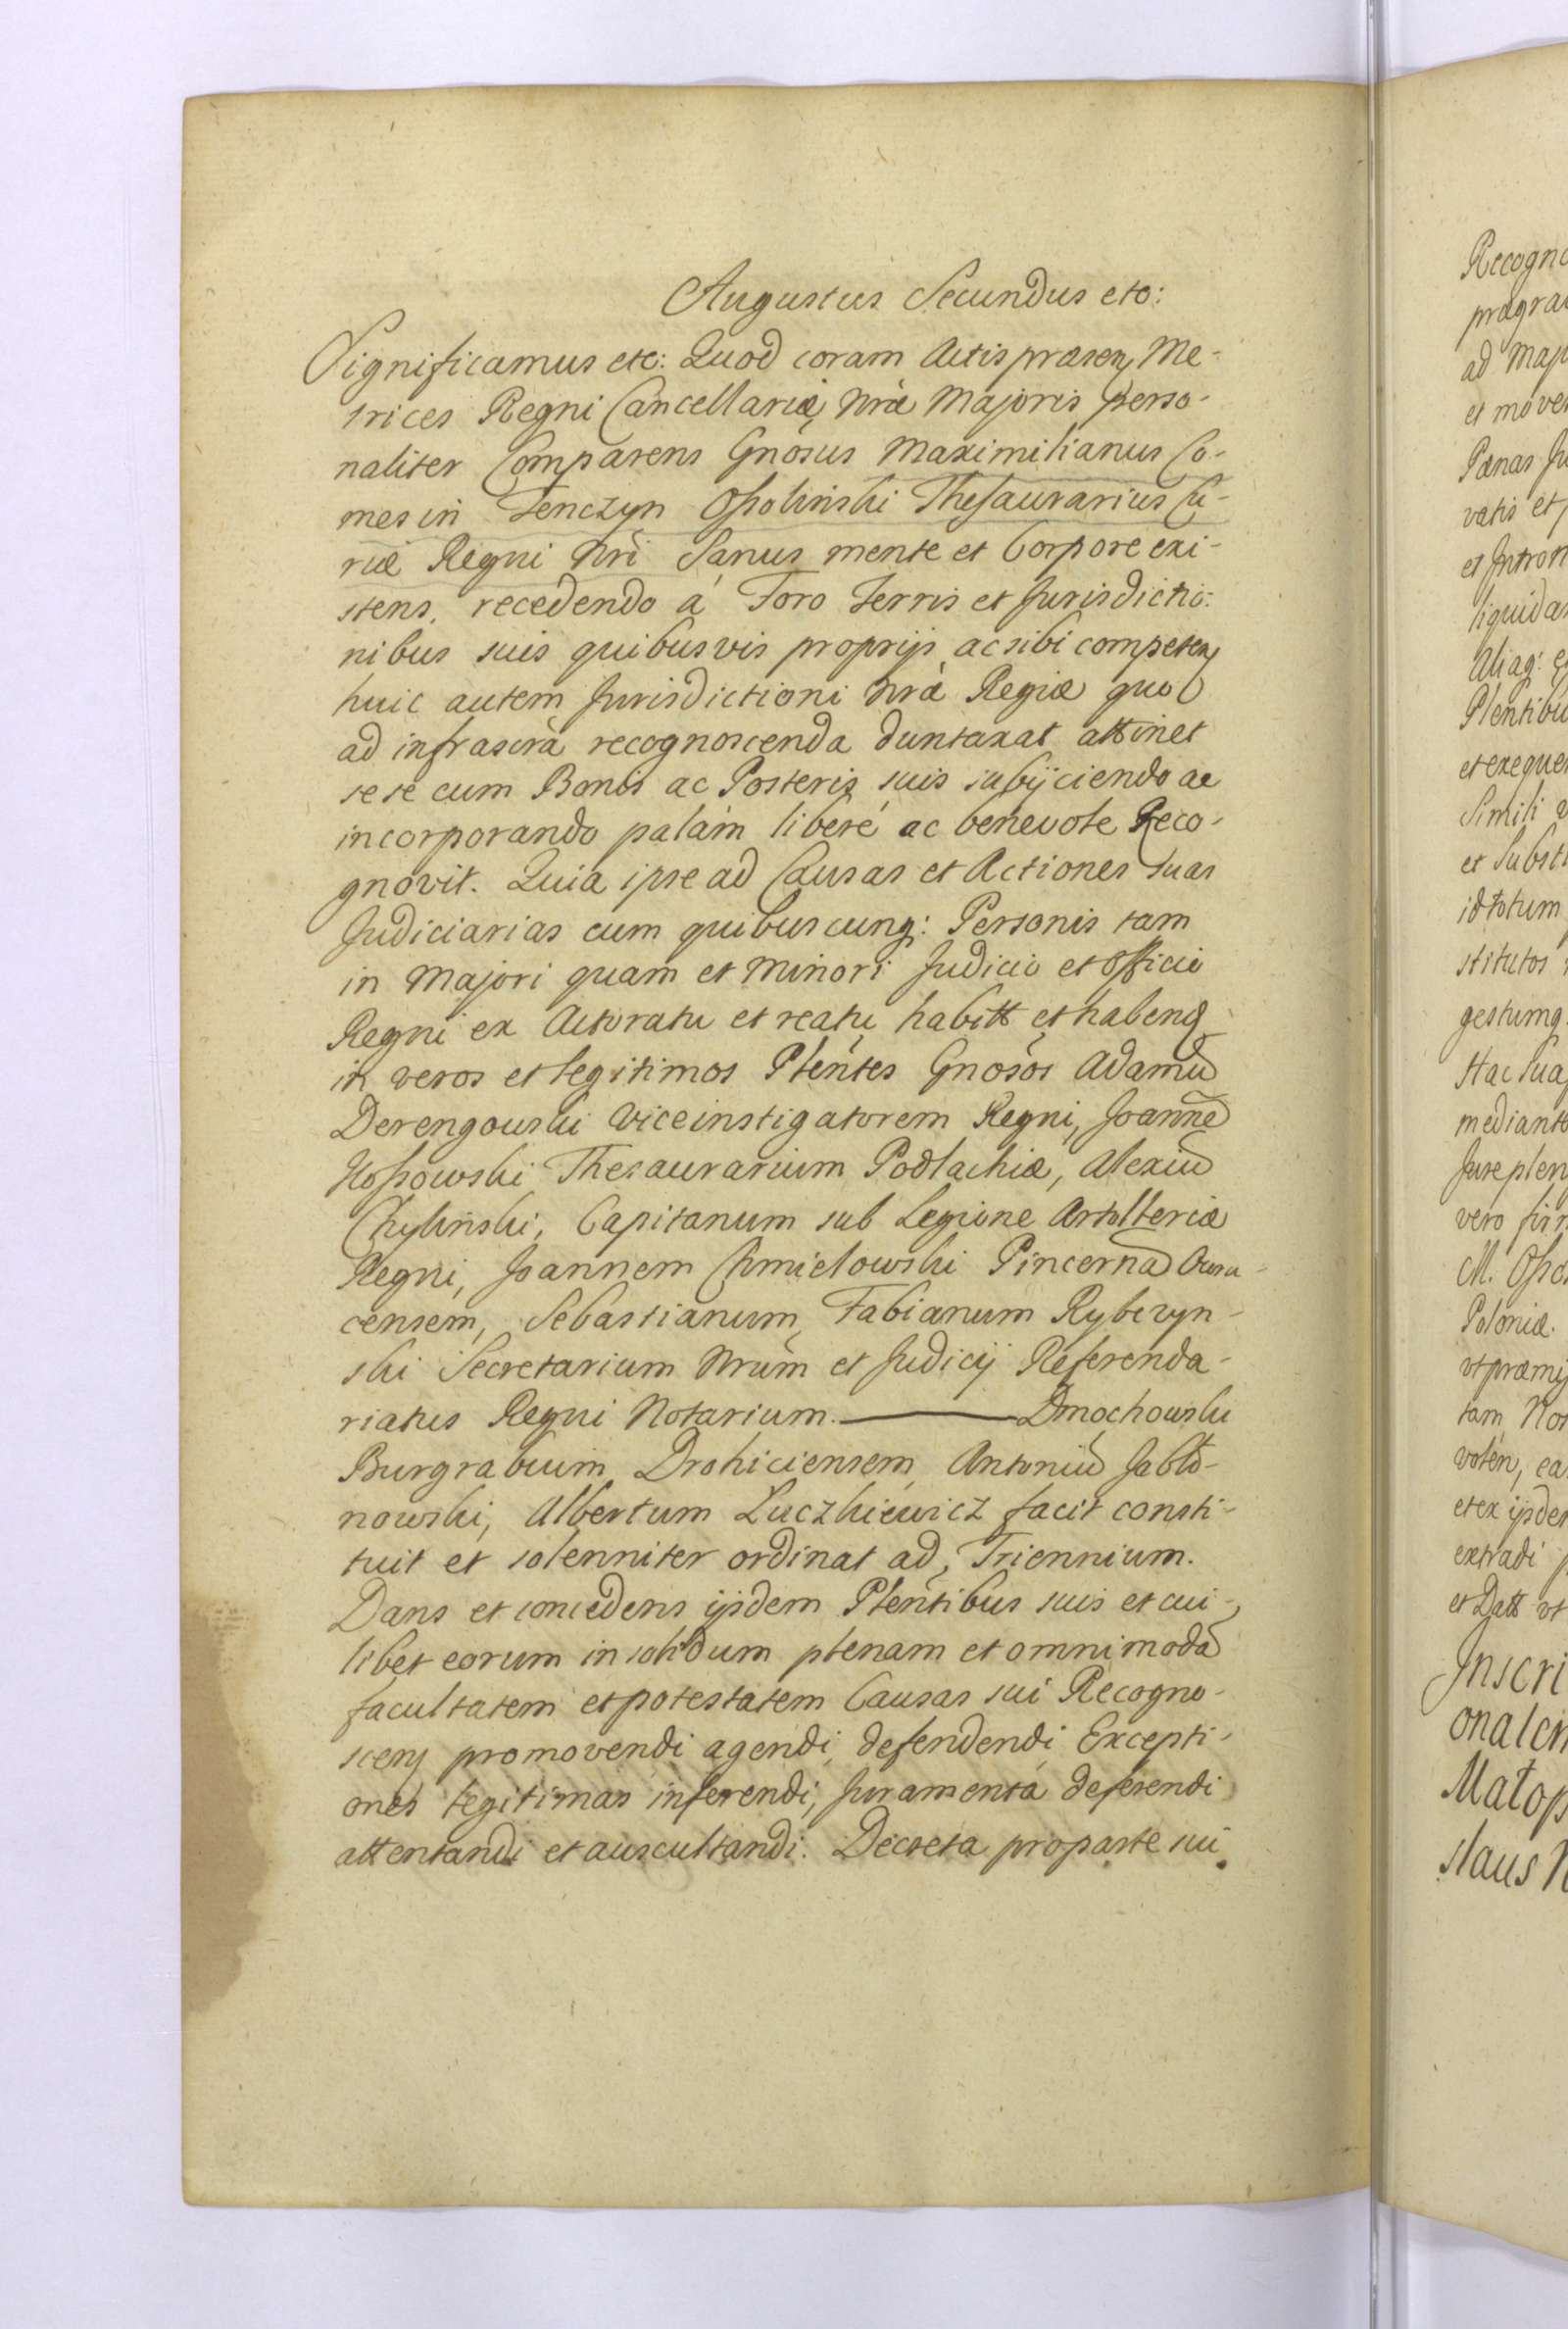 Augustus Secundus etc:
Significamus etc: Quod coram Actis præsen Me-
trices Regni Cancellariæ Nræ Majoris perso-
naliter Comparens Gnosus Maximilianus Co-
mes in Tenczyn Ossolinski Thesaurarius Cu-
riæ Regni Nri Sanus mente et Corpore exi-
stens, recedendo á Foro Terris et Jurisdictio:
nibus suis quibusvis proprijs ac sibi competen
huic autem Jurisdictioni Nræ Regiæ quo
ad infrascrà recognoscenda duntaxat attinet
se se cum Bonis ac Posteris suis subijciendo ac
incorporando palàm liberé ac benevole Reco-
gnovit. Quia ipse ad Causas et Actiones suas
Judiciarias cum quibuscunq: Personis tam
in Majori quam et Minori Judicio et Officio
Regni ex Actoratu et reatu habitt et habend
in veros et legitimos Plentes Gnosos Adamū
Derengowski Viceinstigatorem Regni, Joannē
Kossowski Thesaurarium Podlachiæ, Alexiū
Chylinski, Capitanum sub Legione Artolleriæ
Regni, Joannem Chmielowski Pincernā Owru-
censem, Sebastianum, Fabianum Rybczyn-
ski Secretarium Nrum et Judicij Referenda-
riatus Regni Notarium. ——— Dmochowski
Burgrabium Drohiciensem, Antoniū Jabło-
nowski, Albertum Łuczkiewicz facit consti-
tuit et solenniter ordinat ad Triennium.
Dans et concedens ijsdem Plentibus suis et cui-
libet eorum in solidum plenam et omnimodā
facultatem et potestatem Causas sui Recogno-
scen promovendi agendi, defendendi Excepti-
ones legitimas inferendi, Juramenta deferendi
attentandi et auscultandi. Decreta pro parte sui
Recogno
prægra
ad Maj
et move
Pænas Ju
vatis et
et Intro
liquida
Aliaq:
Plentibu
et exeque
Simili
et Subst
id totum
stitutos
gestumq
Hac Sua
mediant
Jure plen
vero fir
M. Osso
Poloniæ.
vt præmi
tam Nos
volen, ea
et ex ijsde
extradi p
et Datt vt
Inscri
onalem
Małop
slaus N